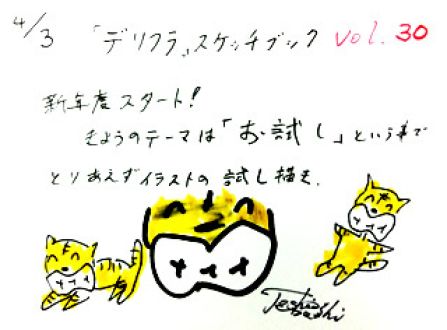 4/3 「デリフラ」スケッチブック vol. 30
新年度スタート!
きょうのテーマは「お試し」という事で
とりあえずイラストの試し描き.